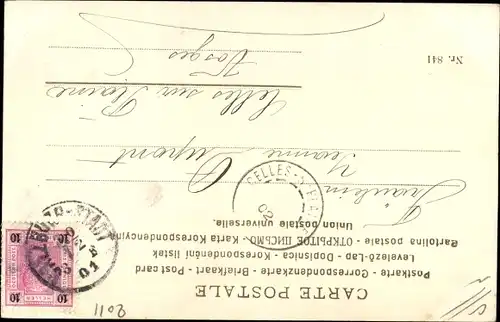 CARTE POSTALE
Postkarte - Correspondenzkarte - Briefkaart - Post card
Levelező-Lap - Dopisnica - Korespondenční lístek
Cartolina postale - ОТКРЫТОЕ ПИСЬМО - Karta Korespondencyjna
Union postale universelle.
Fräulein
Jeanne Dupont
Celles sur Plaine
Vosges
Nr. 841
CELLES-S-PLAINE
02
10 10
HELLER
10 10
2011